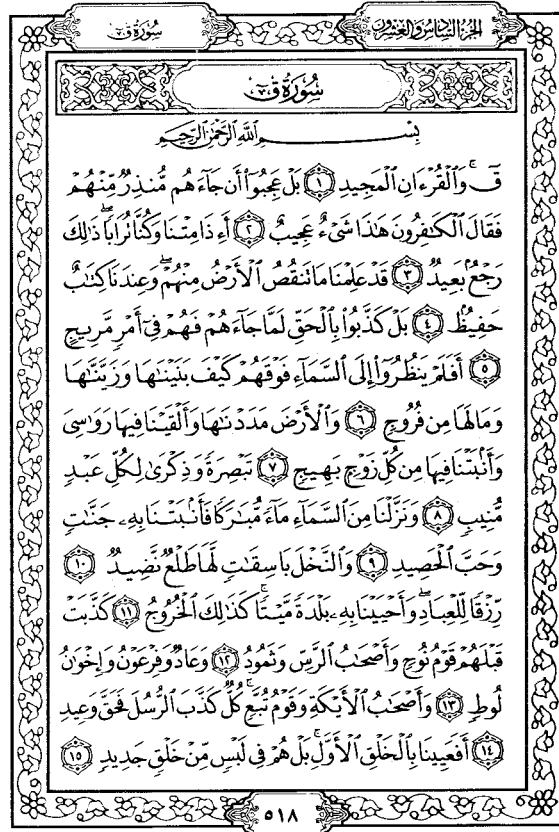 الجزء السادس والعشرون
سورة ق
سورة ق
بسم الله الرحمن الرحيم
قٓ ۚ وَالْقُرْءَانِ الْمَجِيدِ ١ بَلْ عَجِبُوٓا۟ أَن جَآءَهُم مُّنذِرٌ مِّنْهُمْ
فَقَالَ الْكَٰفِرُونَ هَٰذَا شَىْءٌ عَجِيبٌ ٢ أَءِذَا مِتْنَا وَكُنَّا تُرَابًا ۖ ذَٰلِكَ
رَجْعٌۢ بَعِيدٌ ٣ قَدْ عَلِمْنَا مَا تَنقُصُ الْأَرْضُ مِنْهُمْ ۖ وَعِندَنَا كِتَٰبٌ
حَفِيظٌۢ ٤ بَلْ كَذَّبُوا۟ بِالْحَقِّ لَمَّا جَآءَهُمْ فَهُمْ فِىٓ أَمْرٍ مَّرِيجٍ
٥ أَفَلَمْ يَنظُرُوٓا۟ إِلَى السَّمَآءِ فَوْقَهُمْ كَيْفَ بَنَيْنَٰهَا وَزَيَّنَّٰهَا
وَمَا لَهَا مِن فُرُوجٍ ٦ وَالْأَرْضَ مَدَدْنَٰهَا وَأَلْقَيْنَا فِيهَا رَوَٰسِىَ
وَأَنۢبَتْنَا فِيهَا مِن كُلِّ زَوْجٍۭ بَهِيجٍ ٧ تَبْصِرَةً وَذِكْرَىٰ لِكُلِّ عَبْدٍ
مُّنِيبٍ ٨ وَنَزَّلْنَا مِنَ السَّمَآءِ مَآءً مُّبَٰرَكًا فَأَنۢبَتْنَا بِهِۦ جَنَّٰتٍ
وَحَبَّ الْحَصِيدِ ٩ وَالنَّخْلَ بَاسِقَٰتٍ لَّهَا طَلْعٌ نَّضِيدٌ ١٠
رِّزْقًا لِّلْعِبَادِ ۖ وَأَحْيَيْنَا بِهِۦ بَلْدَةً مَّيْتًا ۚ كَذَٰلِكَ الْخُرُوجُ ١١ كَذَّبَتْ
قَبْلَهُمْ قَوْمُ نُوحٍ وَأَصْحَٰبُ الرَّسِّ وَثَمُودُ ١٢ وَعَادٌ وَفِرْعَوْنُ وَإِخْوَٰنُ
لُوطٍ ١٣ وَأَصْحَٰبُ الْأَيْكَةِ وَقَوْمُ تُبَّعٍ ۚ كُلٌّ كَذَّبَ الرُّسُلَ فَحَقَّ وَعِيدِ
١٤ أَفَعَيِينَا بِالْخَلْقِ الْأَوَّلِ ۚ بَلْ هُمْ فِى لَبْسٍ مِّنْ خَلْقٍ جَدِيدٍ ١٥
٥١٨